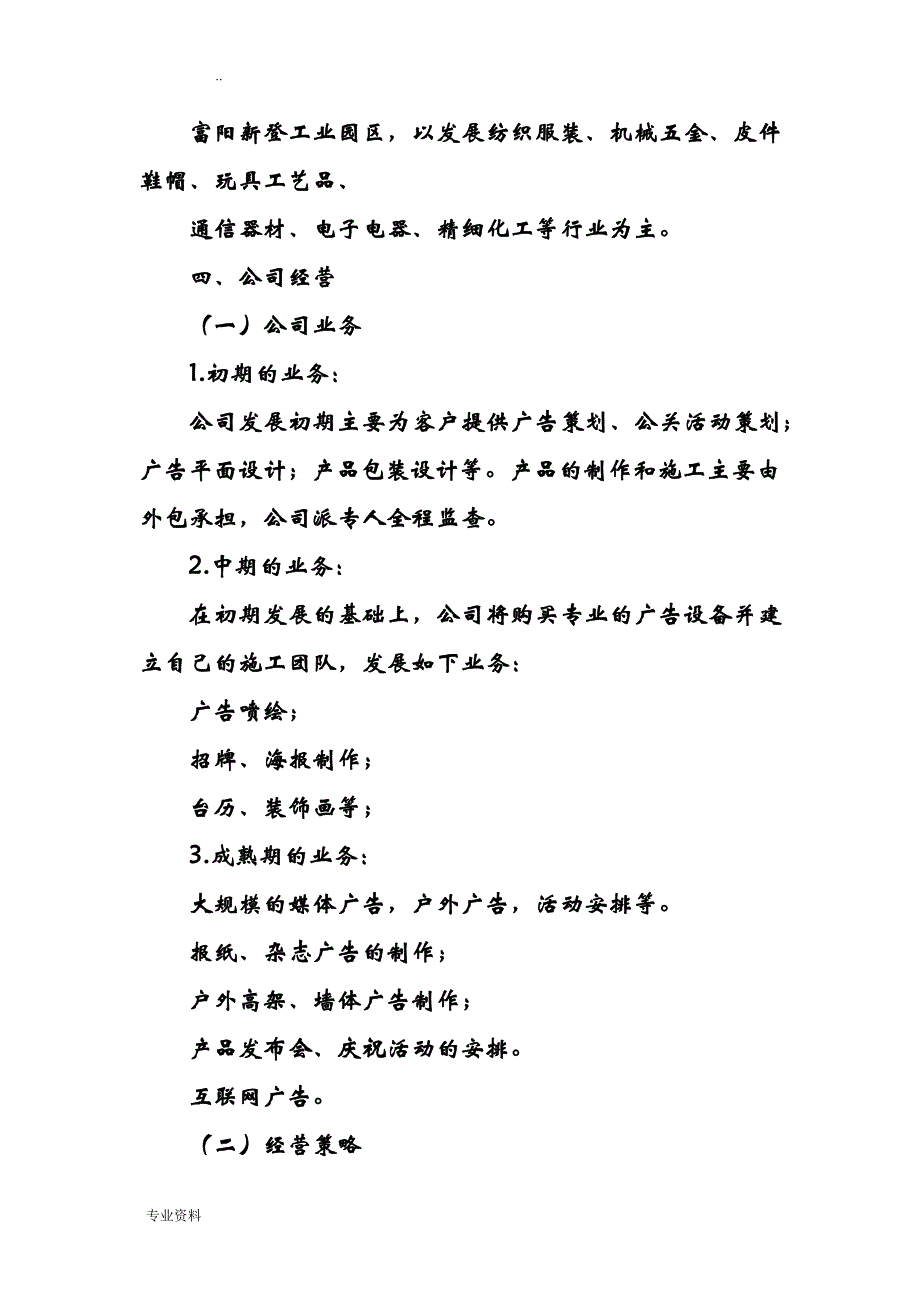 ..
富阳新登工业园区，以发展纺织服装、机械五金、皮件
鞋帽、玩具工艺品、
通信器材、电子电器、精细化工等行业为主。
四、公司经营
（一）公司业务
1.初期的业务：
公司发展初期主要为客户提供广告策划、公关活动策划；
广告平面设计；产品包装设计等。产品的制作和施工主要由
外包承担，公司派专人全程监查。
2.中期的业务：
在初期发展的基础上，公司将购买专业的广告设备并建
立自己的施工团队，发展如下业务：
广告喷绘；
招牌、海报制作；
台历、装饰画等；
3.成熟期的业务：
大规模的媒体广告，户外广告，活动安排等。
报纸、杂志广告的制作；
户外高架、墙体广告制作；
产品发布会、庆祝活动的安排。
互联网广告。
（二）经营策略
专业资料